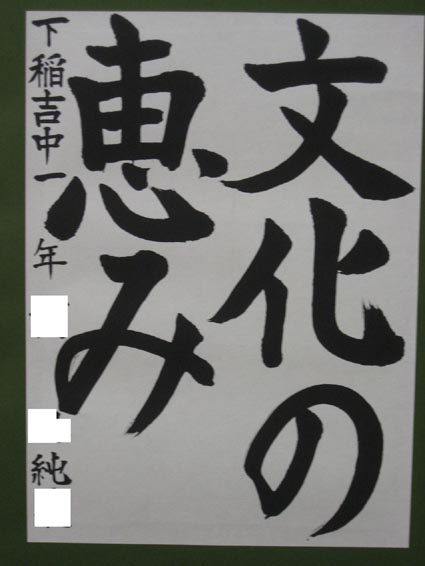 文化の
恵み
下稲吉中一年
純